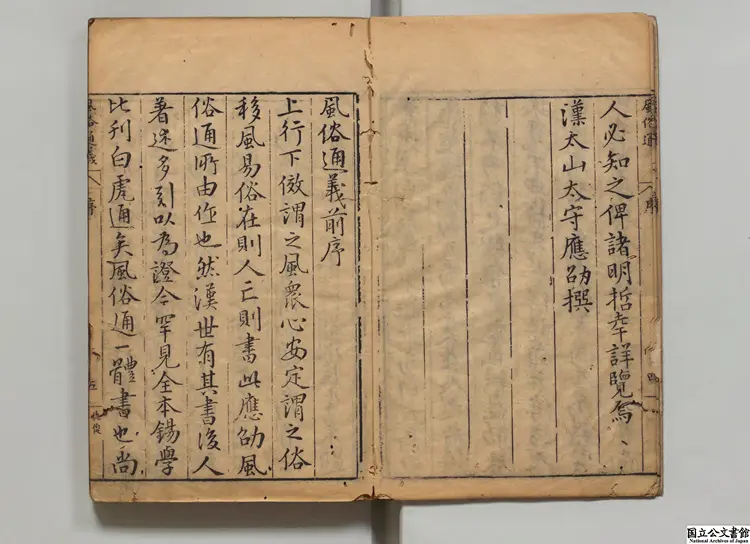 人必知之俾諸明哲幸詳覽焉
漢太山太守應劭撰
風俗通義前序
上行下傚謂之風衆心安定謂之俗
移風易俗在則人亡則書此應劭風
俗通所由作也然漢世有其書後人
著述多引以為證今罕見全本錫學
比刊白虎通矣風俗通一體書也尚
風俗通
序
四
風俗通義
序
五
国立公文書館
National Archives of Japan